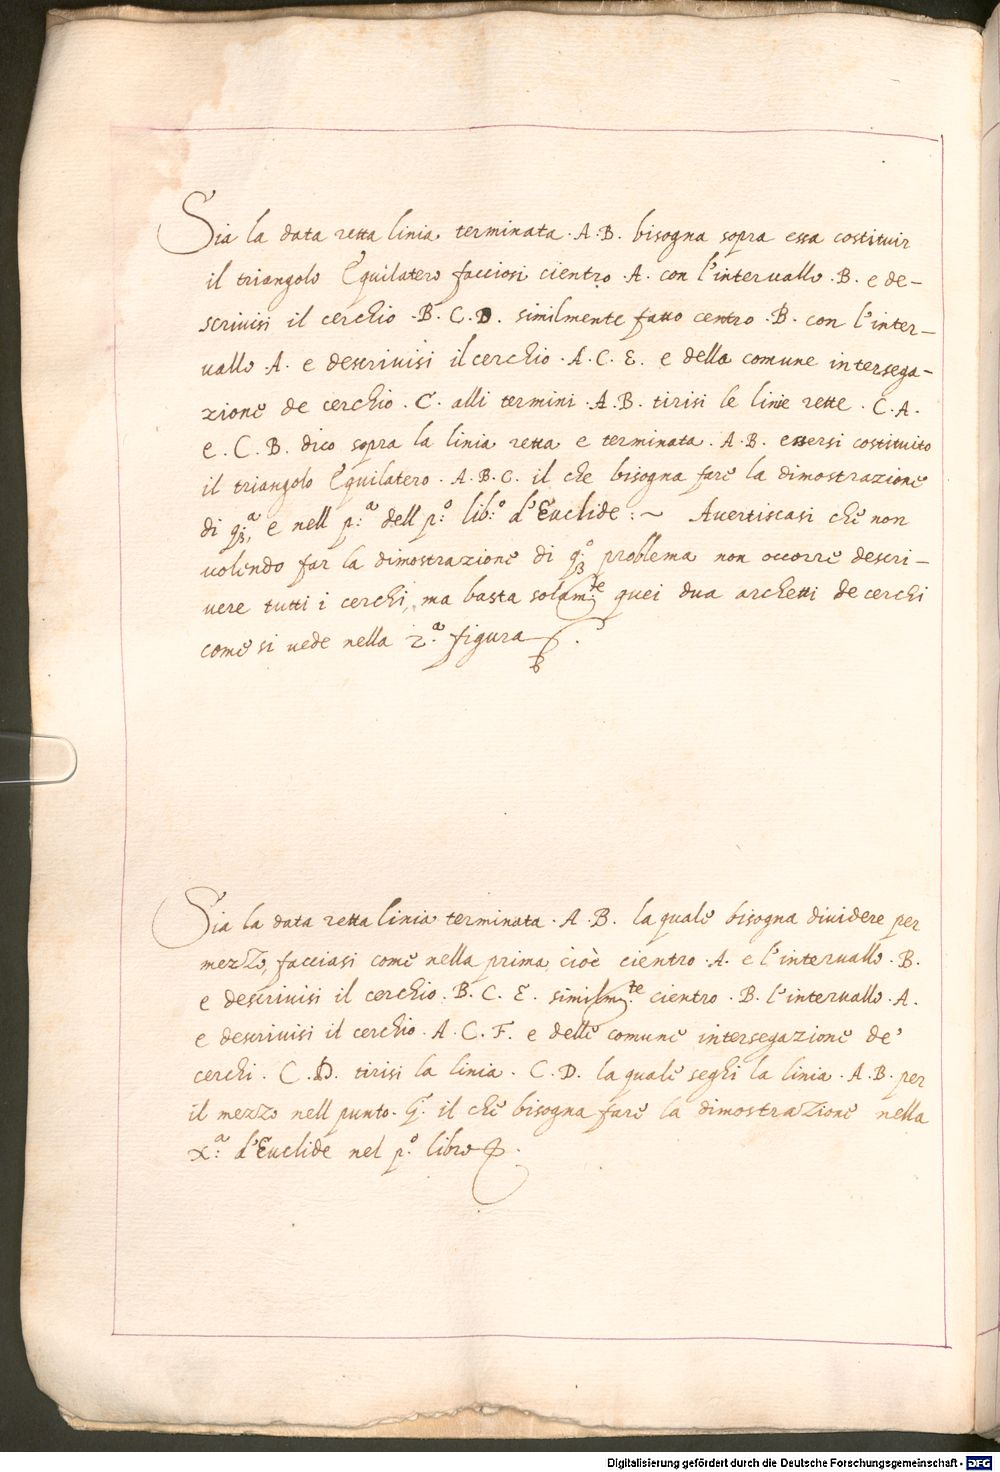 Sia la data retta linia terminata . A . B . bisogna sopra essa costituir
il triangolo Equilatero facciosi cientro . A . con l'interuallo . B . e de-
scriuisi il cerchio . B . C . D . similmente fatto centro . B . con l'inter-
uallo . A . e descriuisi il cerchio . A . C . E . e della comune intersega-
zione de cerchio . C . alli termini . A . B . tirisi le linie rette . C . A .
e . C . B . dico sopra la linia retta e terminata . A . B . essersi costituito
il triangolo Equilatero . A . B . C . il che bisogna fare la dimostrazione
di q:ª, e nell p:ª dell p:º lib:º d'Euclide : ~ Auertiscasi che non
uolendo far la dimostrazione di q:º problema non occorre descri-
uere tutti i cerchi, ma basta solam:te quei dua archetti de cerchi
come si uede nella 2:ª figura
Sia la data retta linia terminata . A . B . la quale bisogna diuidere per
mezzo, facciasi come nella prima cioè cientro . A . e l'interuallo . B .
e descriuisi il cerchio . B . C . E . similm:te cientro . B . l'interuallo . A .
e descriuisi il cerchio . A . C . F . e delle comune intersegazione de'
cerchi . C . D . tirisi la linia . C . D . la quale seghi la linia . A . B . per
il mezzo nell punto . G . il che bisogna fare la dimostrazione nella
x:ª d'Euclide nel p:º libro .
Digitalisierung gefördert durch die Deutsche Forschungsgemeinschaft - DFG